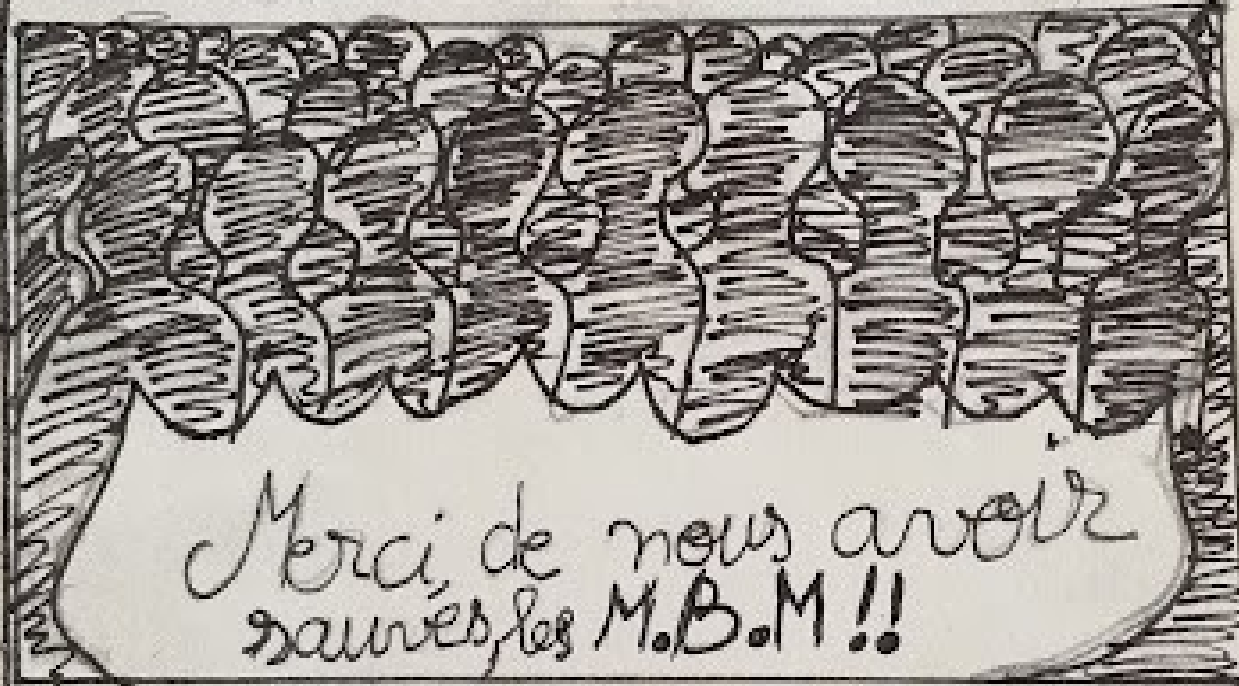 Merci, de nous avoir
sauvés, les M.B.M !!